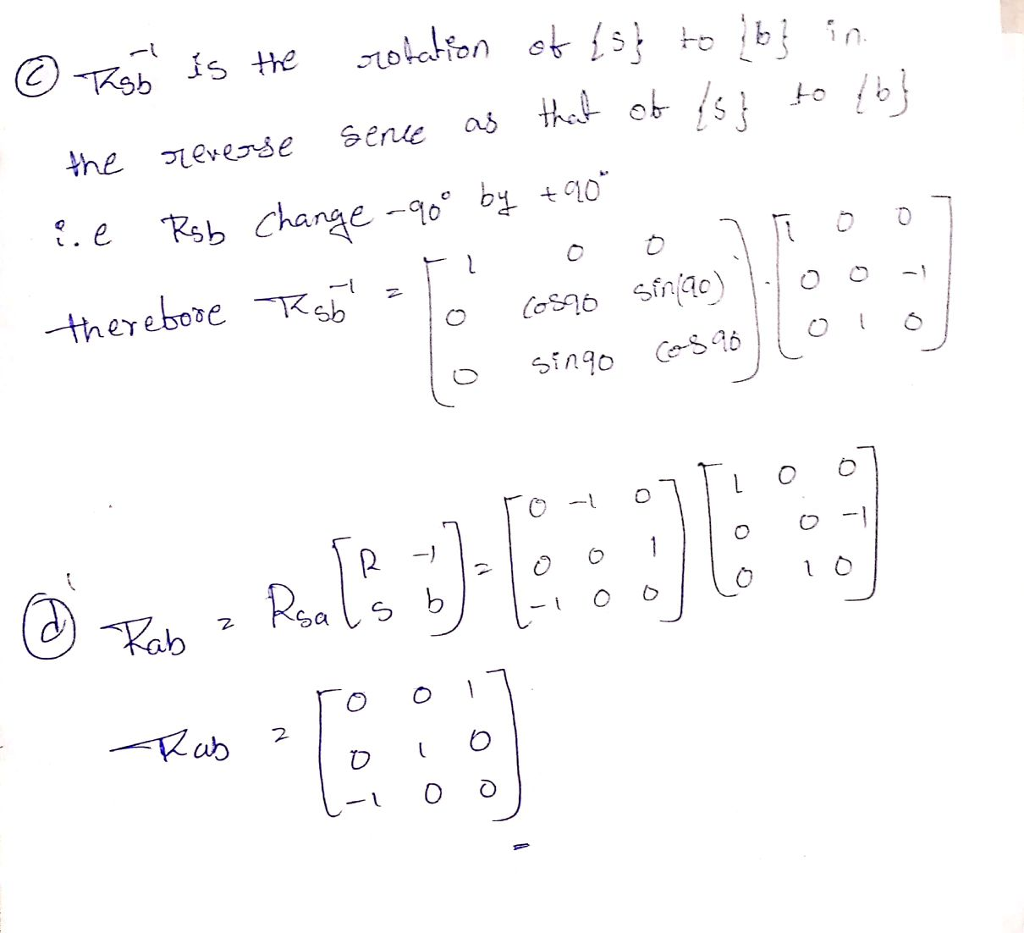 (c) Rsb⁻¹ is the rotation of {s} to {b} in
the reverse sence as that of {s} to {b}
i.e Rsb change -90° by +90°
therefore Rsb⁻¹ = [1 0 0; 0 cos90 sin(90); 0 sin90 cos90] · [1 0 0; 0 0 -1; 0 1 0]
(d) Rab = Rsa [R -1; s b] = [0 -1 0; 0 0 1; -1 0 0] [1 0 0; 0 0 -1; 0 1 0]
Rab = [0 0 1; 0 1 0; -1 0 0]